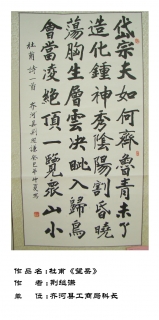 岱宗夫如何齊魯青未了
造化鍾神秀陰陽割昏曉
蕩胸生層雲決眦入歸鳥
會當凌絕頂一覽衆山小
杜甫詩一首
作品名:杜甫《望岳》
作　者:荆继谦
单　位:齐河县工商局科长